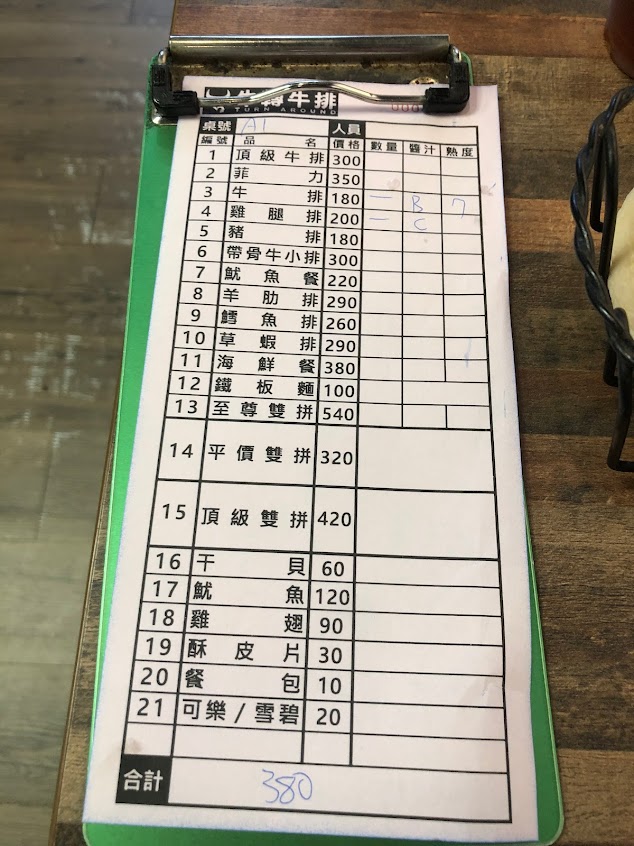 牛轉牛排
TURN AROUND
桌號 A1 人員
編號 品名 價格 數量 醬汁 熟度
1 頂級牛排 300
2 菲力 350
3 牛排 180 一 B 7
4 雞腿排 200 一 C
5 豬排 180
6 帶骨牛小排 300
7 魷魚餐 220
8 羊肋排 290
9 鱈魚排 260
10 草蝦排 290
11 海鮮餐 380
12 鐵板麵 100
13 至尊雙拼 540
14 平價雙拼 320
15 頂級雙拼 420
16 干貝 60
17 魷魚 120
18 雞翅 90
19 酥皮片 30
20 餐包 10
21 可樂/雪碧 20
合計 380